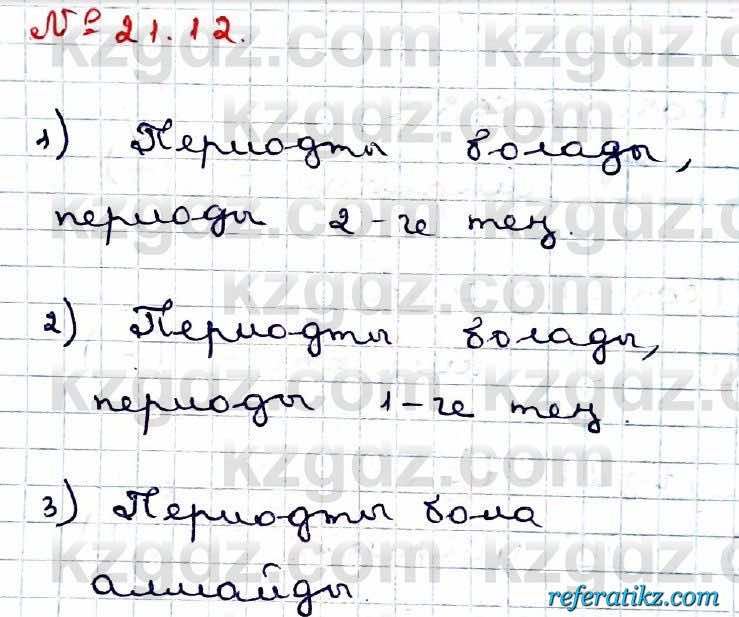 № 21.12.
1) Периодты болады,
периоды 2-ге тең.
2) Периодты болады,
периоды 1-ге тең.
3) Периодты бола
алмайды.
kzgdz.com
referatikz.com